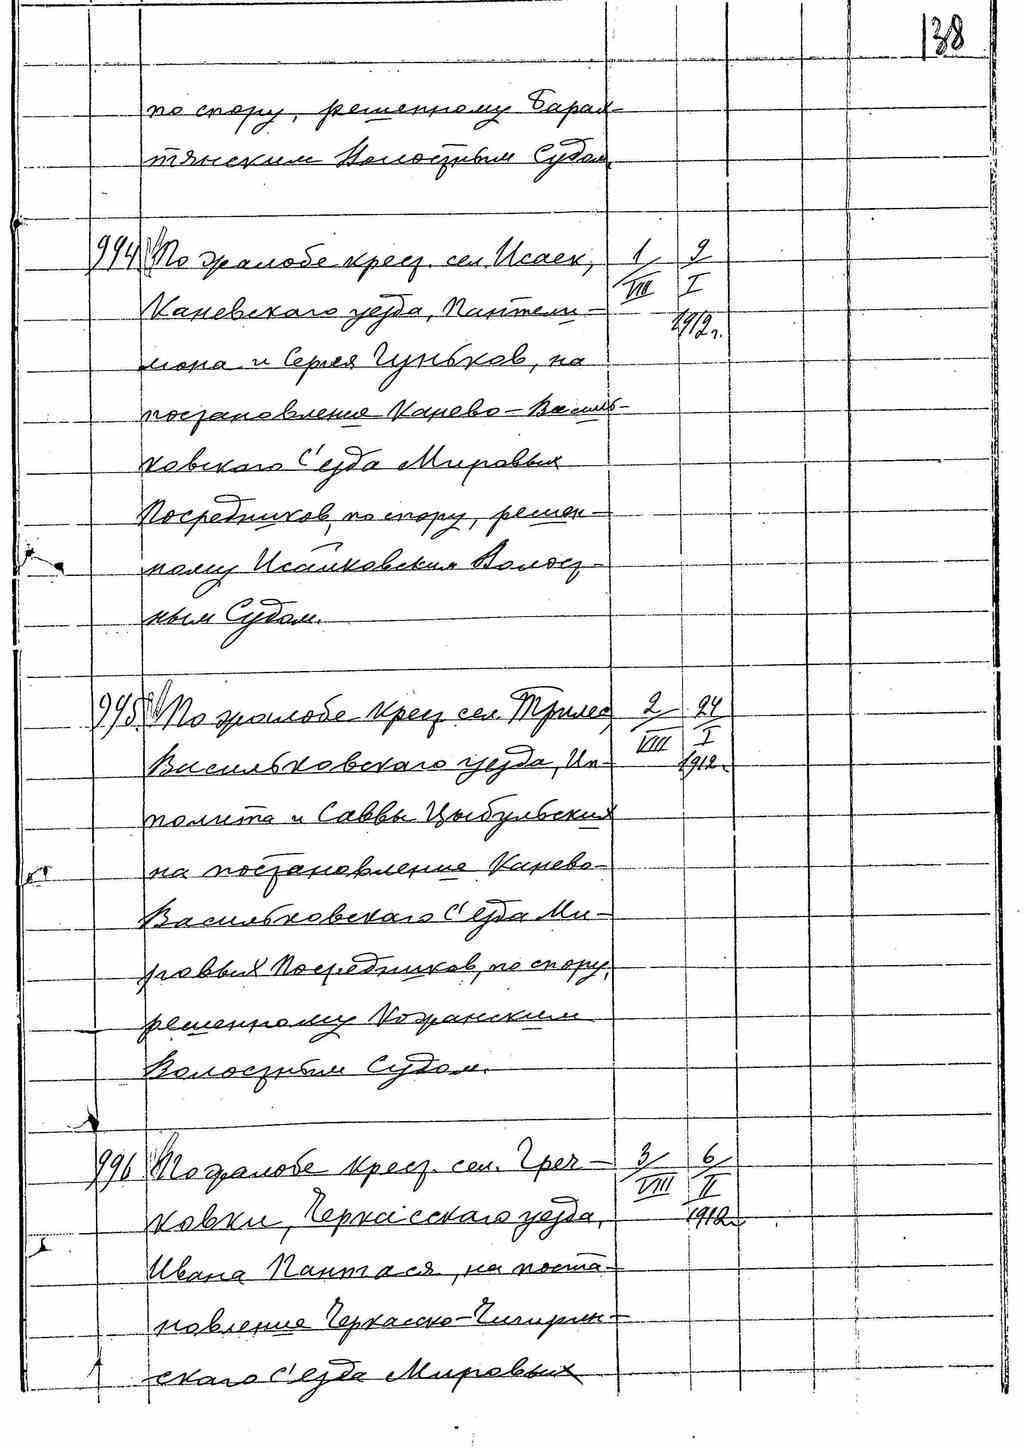 138
по спору, решенному Барах-
тянским Волостным Судом.
994 По жалобе крест. сел. Исаек, 1/VIII 9/I 1912 г.
Каневского уезда, Пантели-
мона и Сергея Гуньков, на
постановление Канево-Василь-
ковскаго С'езда Мировых
Посредников, по спору, решен-
ному Исайковским Волост-
ным Судом.
995. По жалобе крест. сел. Трилес, 2/VIII 24/I 1912 г.
Васильковскаго уезда, Ип-
полита и Саввы Цыбульских
на постановление Канево-
Васильковскаго С'езда Ми-
ровых Посредников, по спору,
решенному Кожанским
Волостным Судом.
996 По жалобе крест. сел. Греч- 3/VIII 6/II 1912 г.
ковки, Черкасскаго уезда,
Ивана Пантася, на поста-
новление Черкасско-Чигирин-
скаго С'езда Мировых